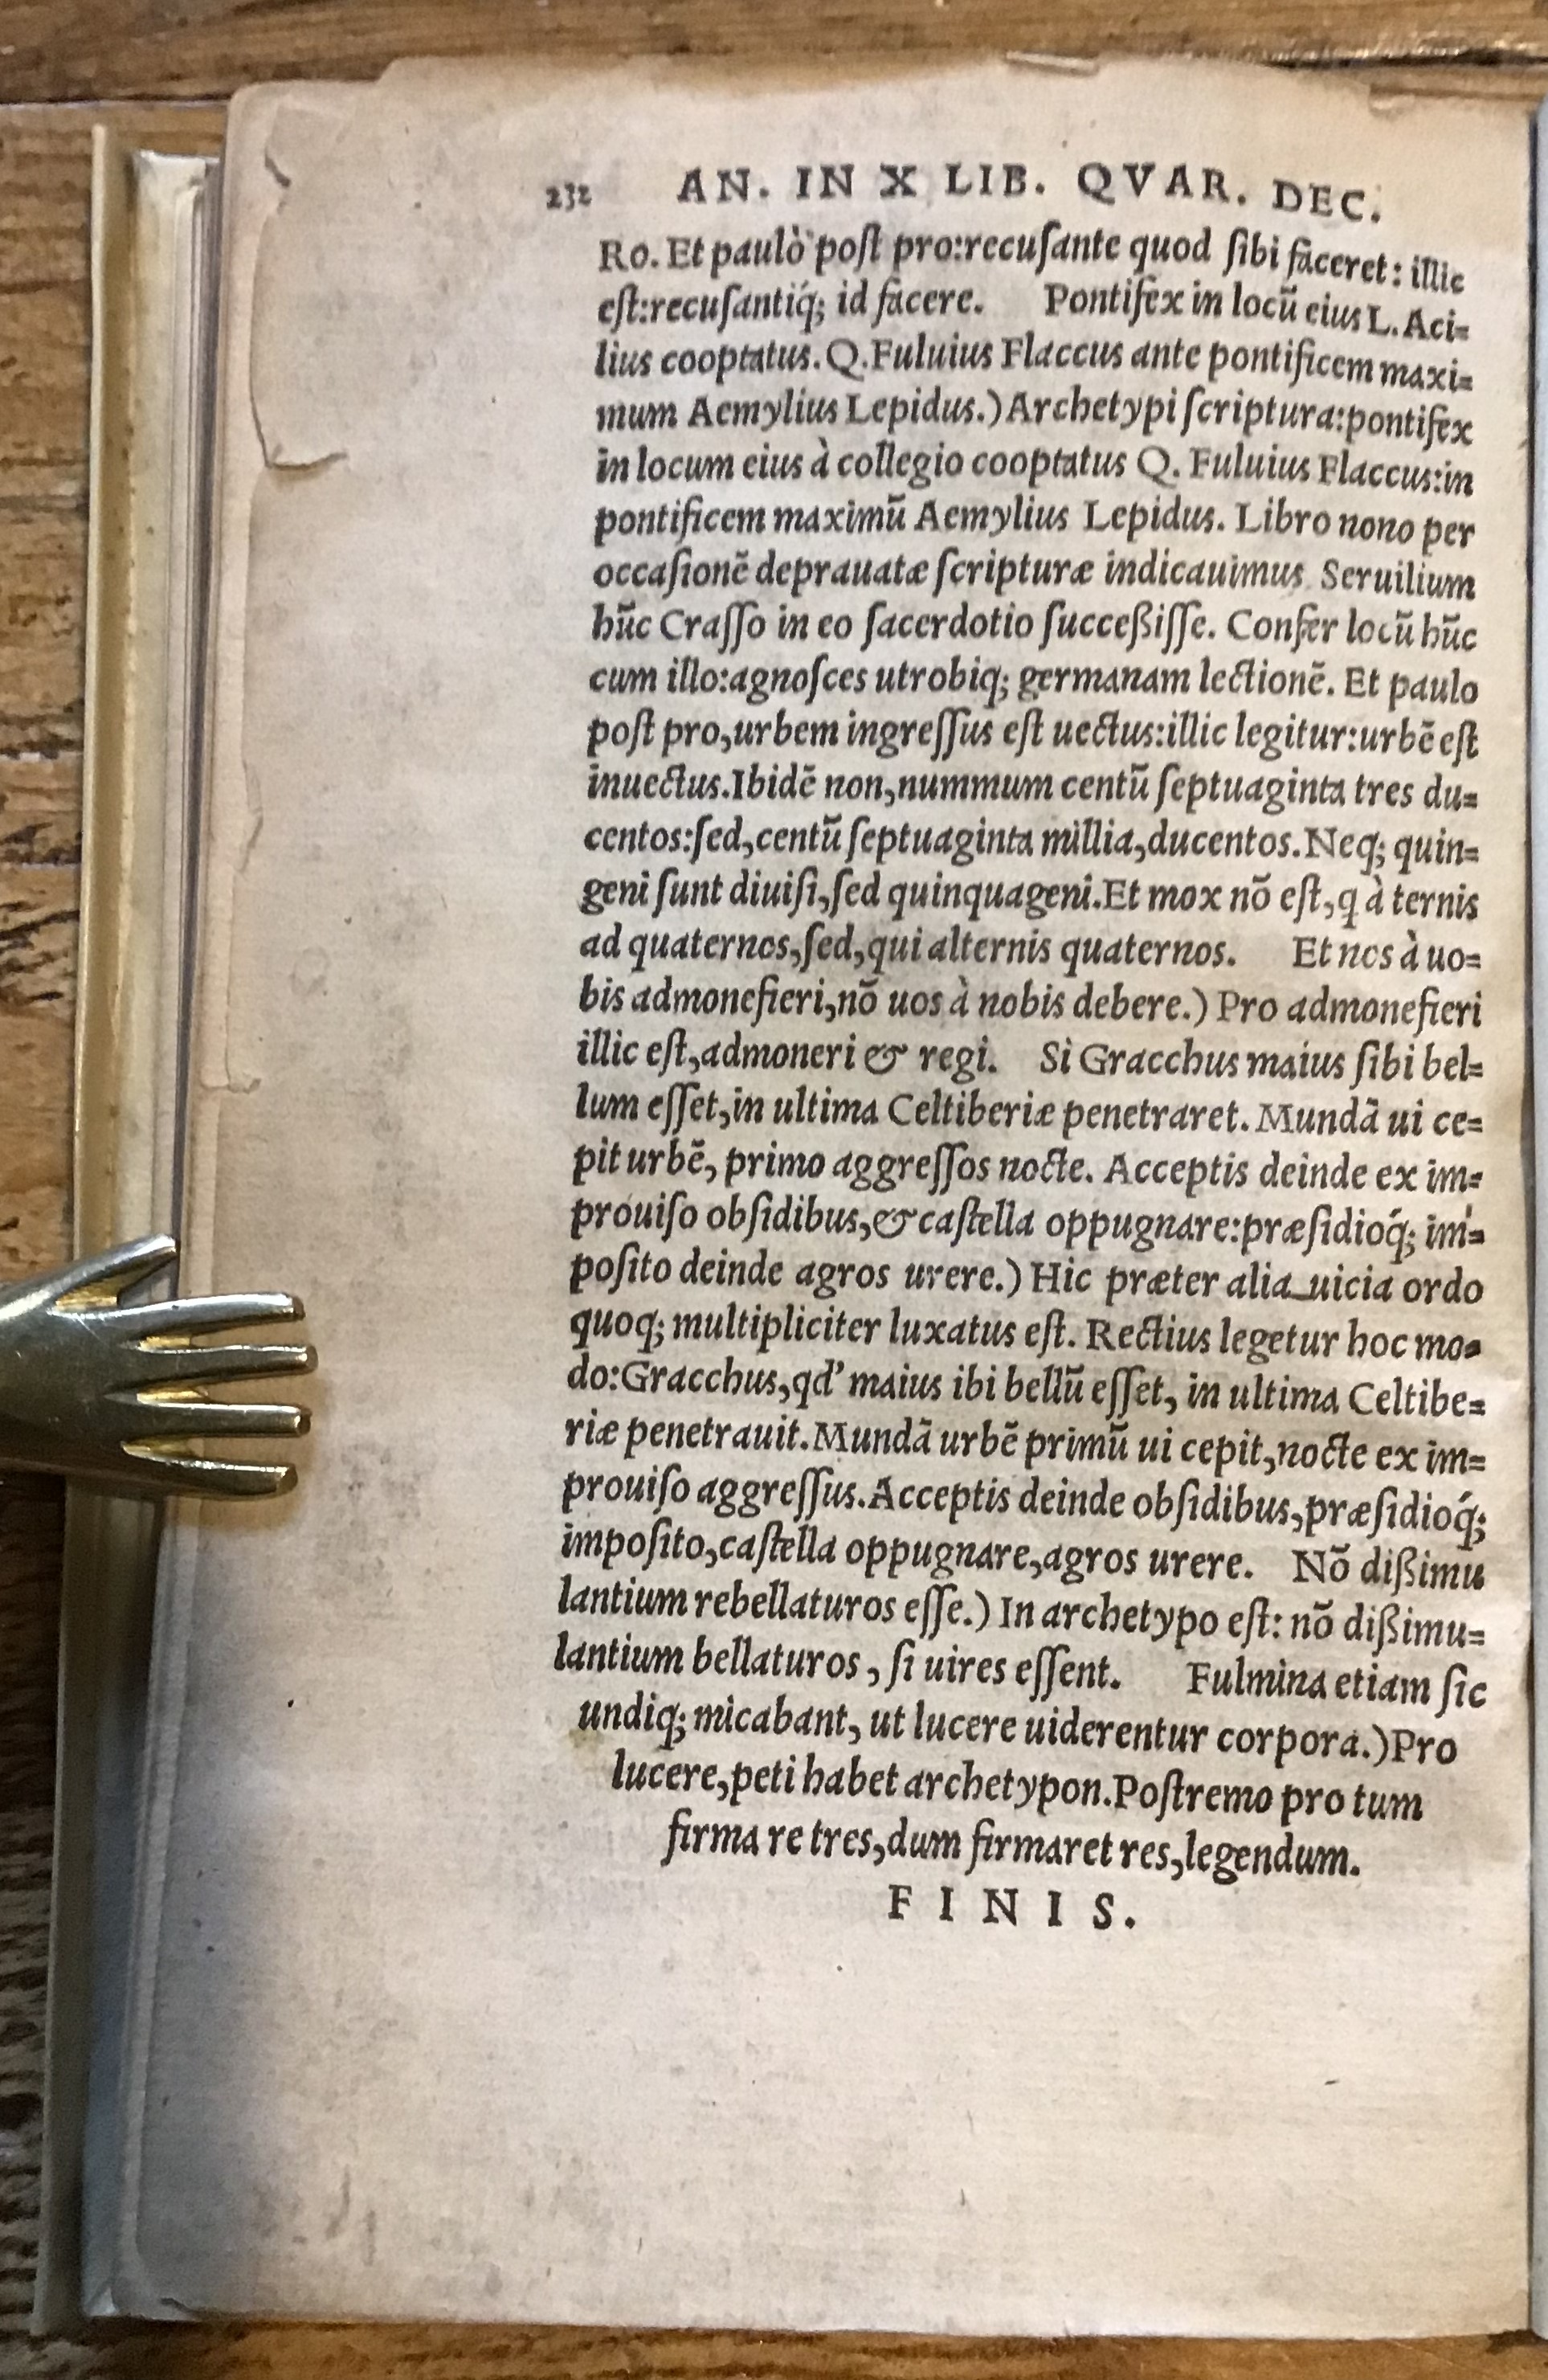 232 AN. IN X LIB. QVAR. DEC.
Ro. Et paulò post pro:recusante quod sibi faceret: illic
est:recusantiq́; id facere. Pontifex in locũ eius L. Aci=
lius cooptatus. Q. Fuluius Flaccus ante pontificem maxi=
mum Aemylius Lepidus.) Archetypi scriptura:pontifex
in locum eius à collegio cooptatus Q. Fuluius Flaccus:in
pontificem maximũ Aemylius Lepidus. Libro nono per
occasionẽ deprauatæ scripturæ indicauimus Seruilium
hũc Crasso in eo sacerdotio succeßisse. Confer locũ hũc
cum illo:agnosces utrobiq; germanam lectionẽ. Et paulo
post pro,urbem ingressus est uectus:illic legitur:urbẽ est
inuectus.Ibidẽ non,nummum centũ septuaginta tres du=
centos:sed,centũ septuaginta millia,ducentos.Neq; quin=
geni sunt diuisi,sed quinquageni.Et mox nõ est,q à ternis
ad quaternos,sed,qui alternis quaternos. Et nos à uo=
bis admonefieri,nõ uos à nobis debere.) Pro admonefieri
illic est,admoneri & regi. Si Gracchus maius sibi bel=
lum esset,in ultima Celtiberiæ penetraret. Mundã ui ce=
pit urbẽ, primo aggressos nocte. Acceptis deinde ex im=
prouiso obsidibus,& castella oppugnare:præsidioq́; im=
posito deinde agros urere.) Hic præter alia uicia ordo
quoq; multipliciter luxatus est. Rectius legetur hoc mo=
do:Gracchus,qd' maius ibi bellũ esset, in ultima Celtibe=
riæ penetrauit.Mundã urbẽ primũ ui cepit,nocte ex im=
prouiso aggressus.Acceptis deinde obsidibus,præsidioq́;
imposito,castella oppugnare,agros urere. Nõ dißimu
lantium rebellaturos esse.) In archetypo est: nõ dißimu=
lantium bellaturos, si uires essent. Fulmina etiam sic
undiq; micabant, ut lucere uiderentur corpora.)Pro
lucere,peti habet archetypon.Postremo pro tum
firma re tres,dum firmaret res,legendum.
FINIS.